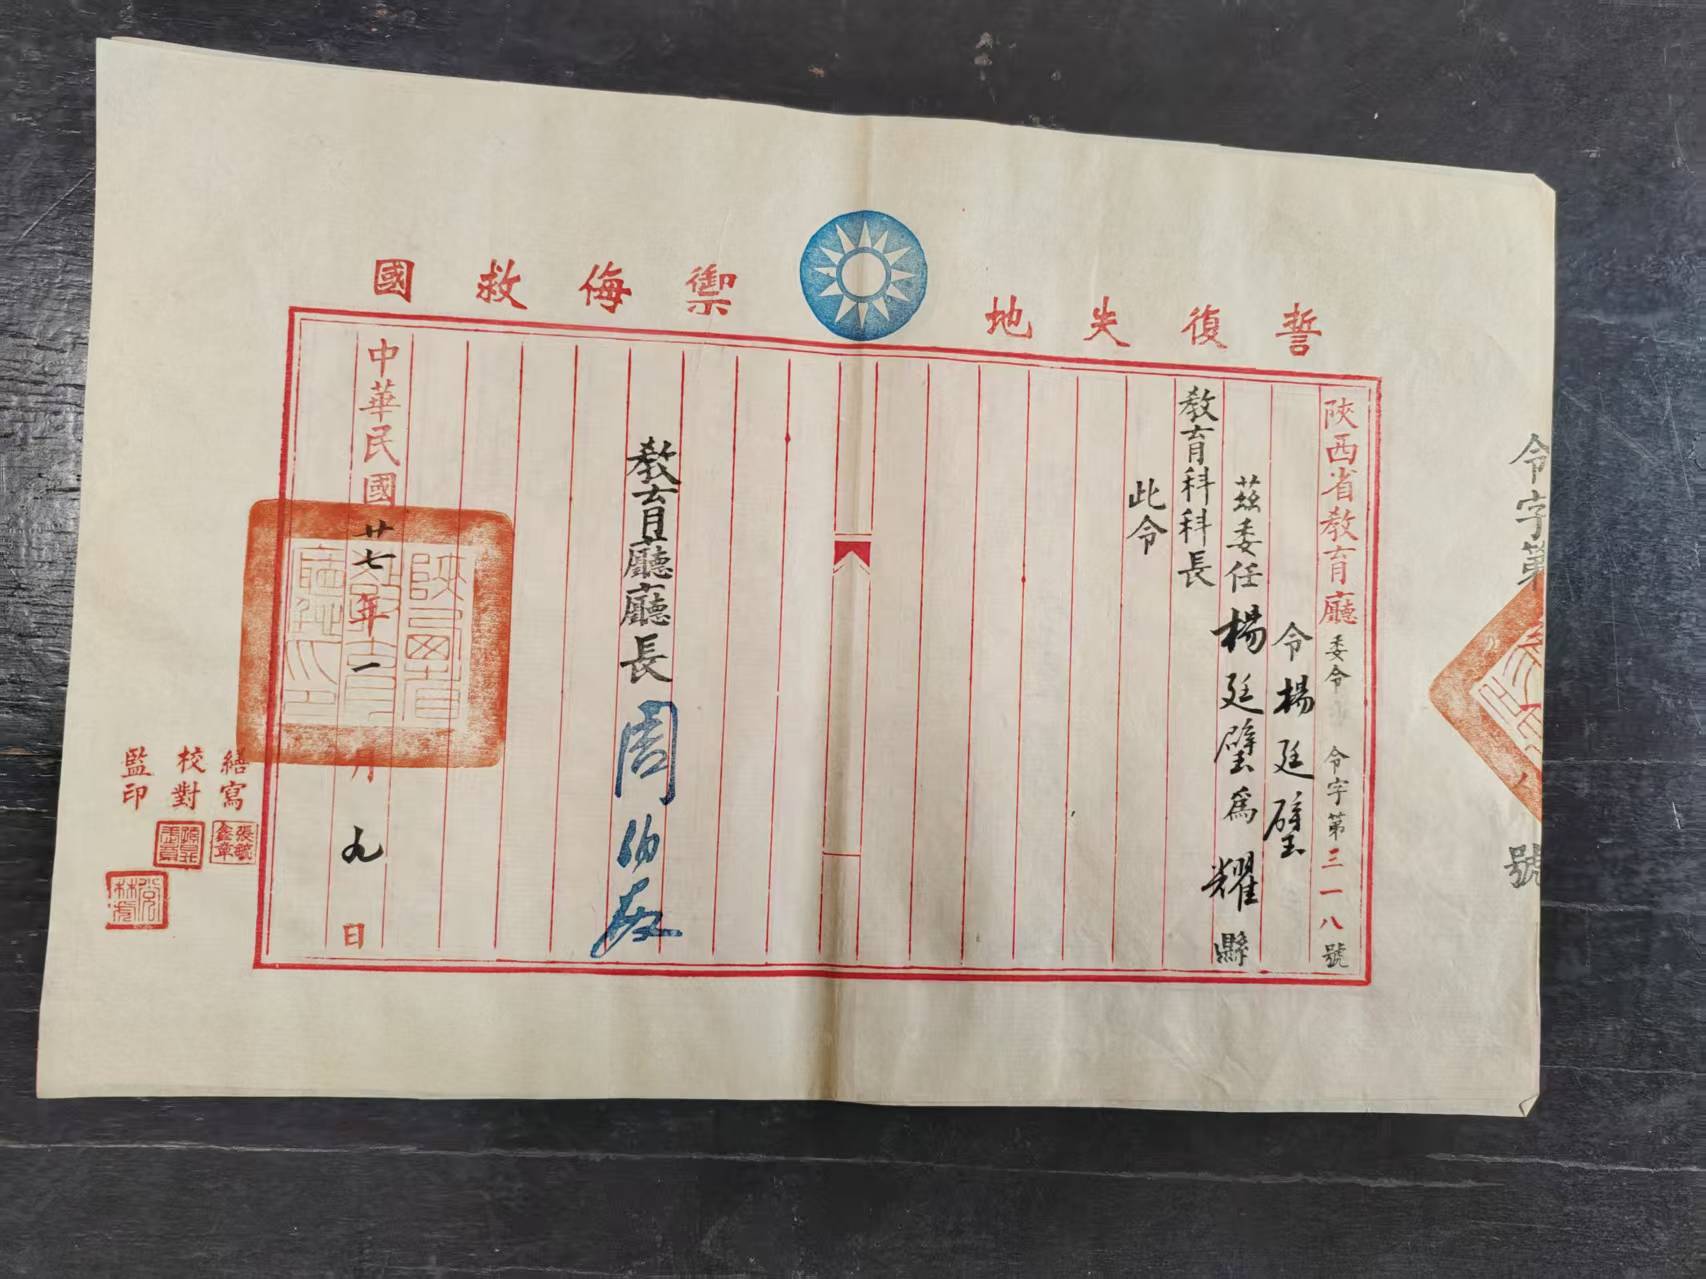 誓復失地
禦侮救國
令字第
號
陝西省教育廳委令
令字第三一八號
令楊廷璧
茲委任楊廷璧爲耀縣
教育科科長
此令
教育廳廳長周伯敏
中華民國廿七年一月九日
繕寫
校對
監印